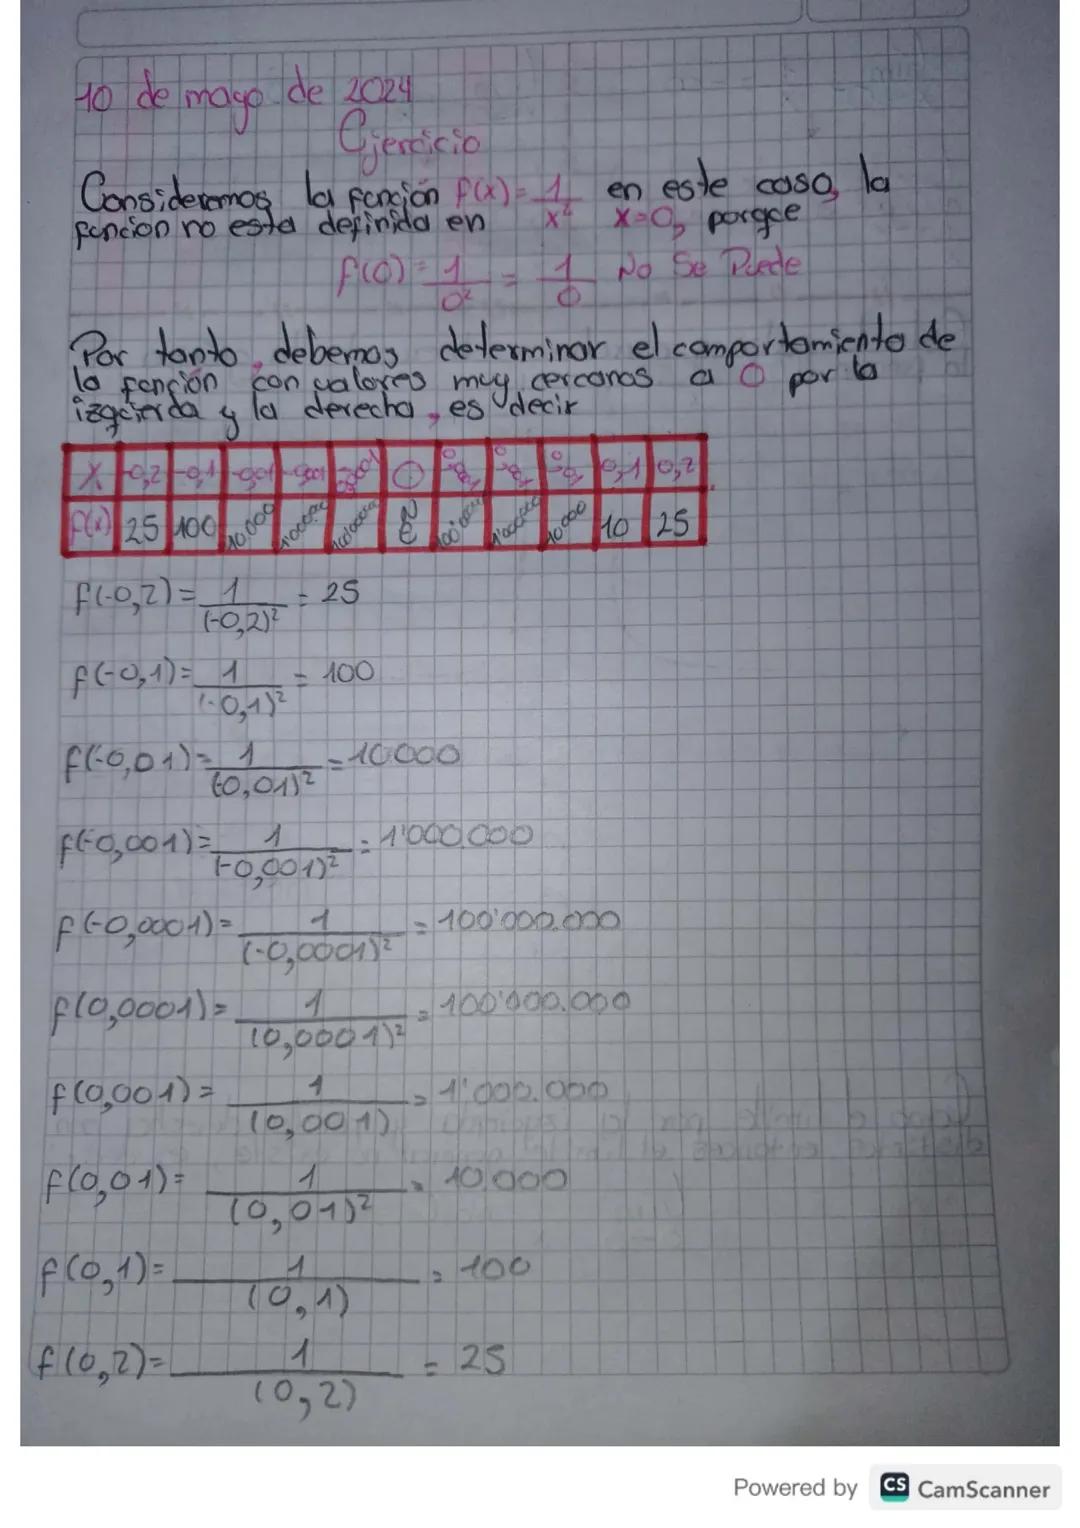 10 de mayo de 2024
Ejercicio
Consideremos la función f(x)= 1/x² en este caso, la
función no esta definida en x=0, porque
f(0)= 1/0² = 1/0 No Se Puede
Por tanto, debemos determinar el comportamiento de
la función con valores muy cercanos a 0 por la
izquierda y la derecha, es decir
X -0,2 -0,1 -0,01 -0,001 -0,0001 0 0,0001 0,001 0,01 0,1 0,2
f(x) 25 100 10.000 1'000.000 100'000.000 100'000.000 1'000.000 10.000 10 25
f(-0,2)= 1/(-0,2)² = 25
f(-0,1)= 1/(-0,1)² = 100
f(-0,01)= 1/(-0,01)² = 10.000
f(-0,001)= 1/(-0,001)² = 1'000.000
f(-0,0001)= 1/(-0,0001)² = 100'000.000
f(0,0001)= 1/(0,0001)² = 100'000.000
f(0,001)= 1/(0,001) = 1'000.000
f(0,01)= 1/(0,01)² = 10.000
f(0,1)= 1/(0,1) = 100
f(0,2)= 1/(0,2) = 25
Powered by CS CamScanner